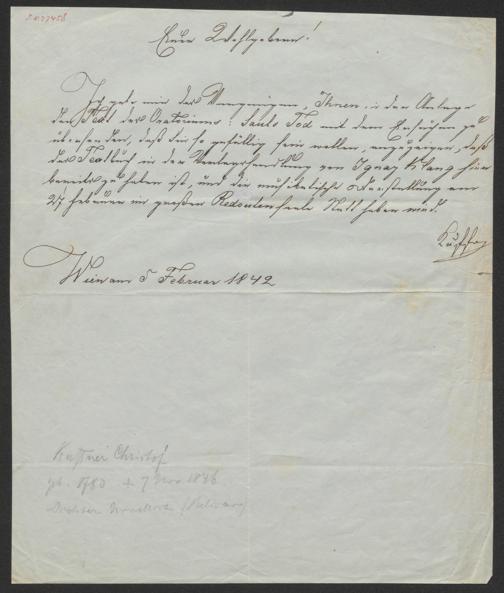 Euer Wohlgeboren!
Ich gebe mir das Vergnügen, Ihnen in der Anlage
den Text des Oratoriums: Sauls Tod mit dem Ersuchen zu
übersenden, daß Sie so gefällig sein wollen, anzuzeigen, daß
das Textbuch in der Verlagshandlung von Ignaz Klang hier
bereits zu haben ist, und die musikalische Darstellung am
27 Februar im großen Redoutensaale Statt haben wird.
Kuffner
Wien am 5 Februar 1842
Kuffner Christof
gb. 1780 + 7 Nov 1846
Dichter